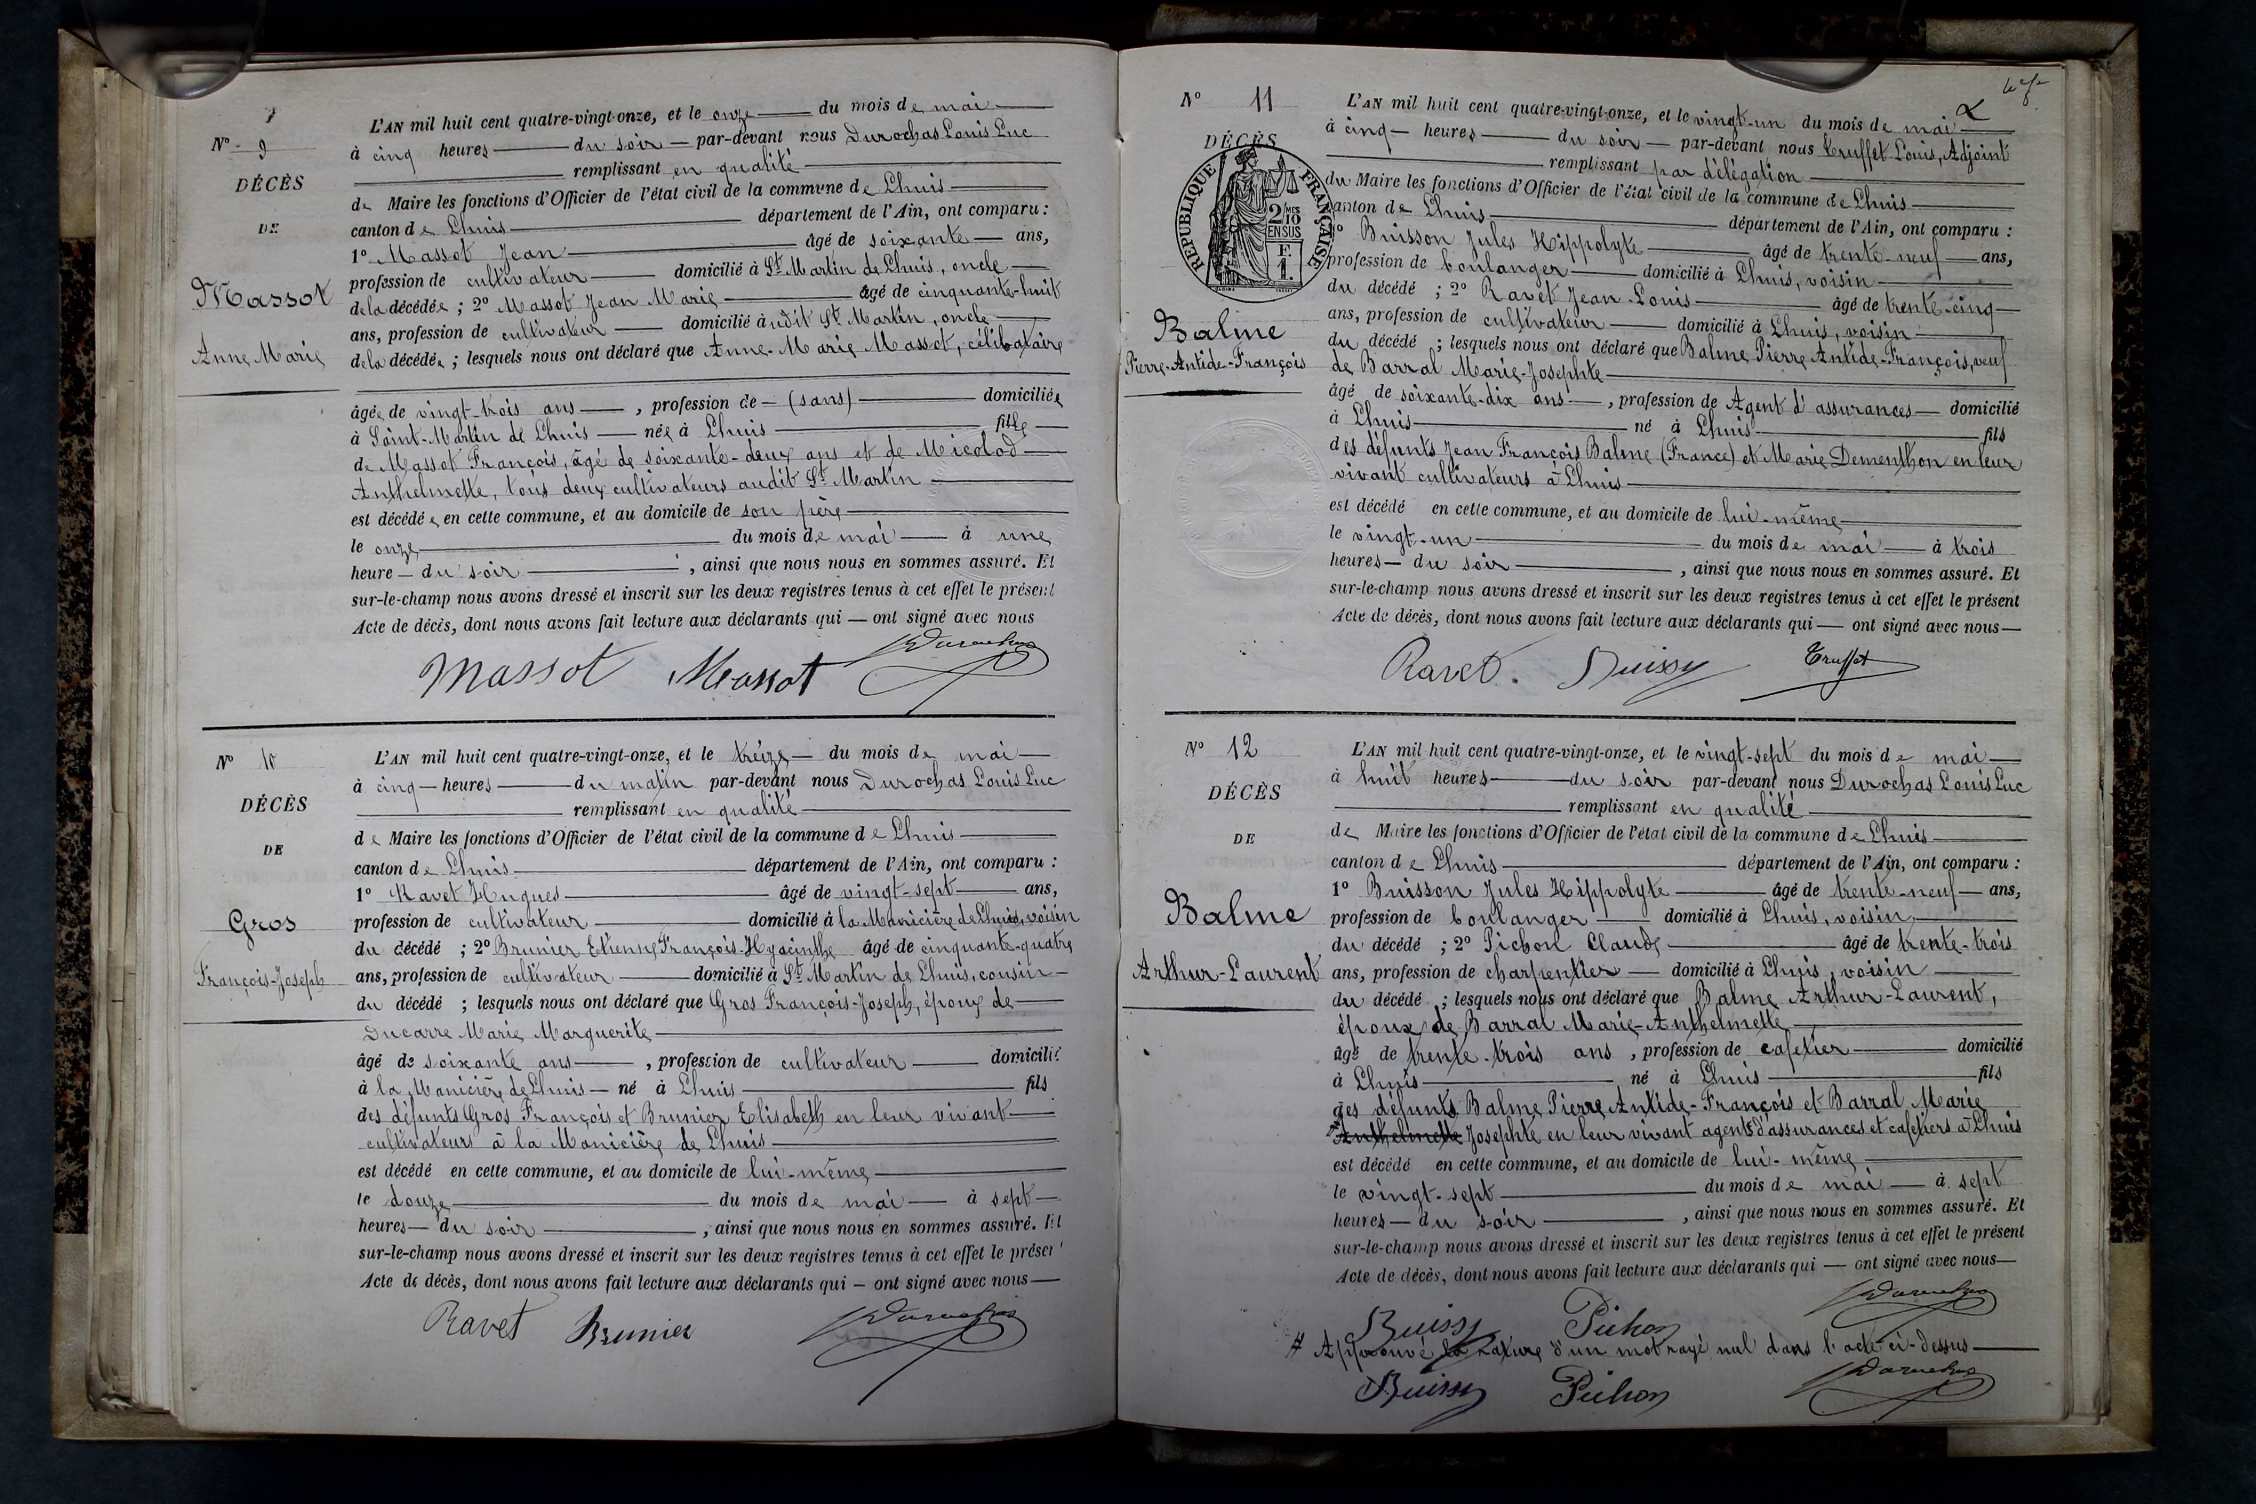 N° 9
DÉCÈS
DE
Massot
Anne Marie
L'AN mil huit cent quatre-vingt-onze, et le onze du mois de mai
à cinq heures du soir par-devant nous Durochas Louis Luc
remplissant en qualité
de Maire les fonctions d'Officier de l'état civil de la commune de Lhuis
canton de Lhuis département de l'Ain, ont comparu :
1° Massot Jean âgé de soixante ans,
profession de cultivateur domicilié à St Martin de Lhuis, oncle
de la décédée ; 2° Massot Jean Marie âgé de cinquante-huit
ans, profession de cultivateur domicilié à udit St Martin, oncle
de la décédée ; lesquels nous ont déclaré que Anne-Marie Massot, célibataire
âgée de vingt-trois ans , profession de (sans) domiciliée
à Saint-Martin de Lhuis née à Lhuis fille
de Massot François, âgé de soixante-deux ans et de Micolod
Anthelmette, tous deux cultivateurs audit St Martin
est décédée en cette commune, et au domicile de son père
le onze du mois de mai à une
heure du soir , ainsi que nous nous en sommes assuré. Et
sur-le-champ nous avons dressé et inscrit sur les deux registres tenus à cet effet le présent
Acte de décès, dont nous avons fait lecture aux déclarants qui — ont signé avec nous
Massot Massot Durochas
N° 10
DÉCÈS
DE
Gros
François-Joseph
L'AN mil huit cent quatre-vingt-onze, et le treize du mois de mai
à cinq heures du matin par-devant nous Durochas Louis Luc
remplissant en qualité
de Maire les fonctions d'Officier de l'état civil de la commune de Lhuis
canton de Lhuis département de l'Ain, ont comparu :
1° Ravet Hugues âgé de vingt-sept ans,
profession de cultivateur domicilié à la Manicière de Lhuis, voisin
du décédé ; 2° Brunier Etienne François-Hyacinthe âgé de cinquante-quatre
ans, profession de cultivateur domicilié à St Martin de Lhuis, cousin
du décédé ; lesquels nous ont déclaré que Gros François-Joseph, époux de
Ducarre Marie Marguerite
âgé de soixante ans , profession de cultivateur domicilié
à la Manicière de Lhuis né à Lhuis fils
des défunts Gros François et Brunier Elisabeth en leur vivant
cultivateurs à la Manicière de Lhuis
est décédé en cette commune, et au domicile de lui-même
le douze du mois de mai à sept
heures du soir , ainsi que nous nous en sommes assuré. Et
sur-le-champ nous avons dressé et inscrit sur les deux registres tenus à cet effet le présent
Acte de décès, dont nous avons fait lecture aux déclarants qui — ont signé avec nous
Ravet Brunier Durochas
N° 11
DÉCÈS
RÉPUBLIQUE FRANÇAISE
2 MES
10
EN SUS
F.
1
Balme
Pierre-Antide-François
L'AN mil huit cent quatre-vingt-onze, et le vingt-un du mois de mai
à cinq heures du soir par-devant nous Truffet Louis, Adjoint
remplissant par délégation
du Maire les fonctions d'Officier de l'état civil de la commune de Lhuis
canton de Lhuis département de l'Ain, ont comparu :
1° Buisson Jules Hippolyte âgé de trente-neuf ans,
profession de boulanger domicilié à Lhuis, voisin
du décédé ; 2° Ravet Jean-Louis âgé de trente-cinq
ans, profession de cultivateur domicilié à Lhuis, voisin
du décédé ; lesquels nous ont déclaré que Balme Pierre Antide-François, veuf
de Barral Marie-Josephte
âgé de soixante-dix ans , profession de Agent d'assurances domicilié
à Lhuis né à Lhuis fils
des défunts Jean François Balme (France) et Marie Dementhon en leur
vivant cultivateurs à Lhuis
est décédé en cette commune, et au domicile de lui-même
le vingt-un du mois de mai à trois
heures du soir , ainsi que nous nous en sommes assuré. Et
sur-le-champ nous avons dressé et inscrit sur les deux registres tenus à cet effet le présent
Acte de décès, dont nous avons fait lecture aux déclarants qui — ont signé avec nous
Ravet. Buisson Truffet
N° 12
DÉCÈS
DE
Balme
Arthur-Laurent
L'AN mil huit cent quatre-vingt-onze, et le vingt-sept du mois de mai
à huit heures du soir par-devant nous Durochas Louis Luc
remplissant en qualité
de Maire les fonctions d'Officier de l'état civil de la commune de Lhuis
canton de Lhuis département de l'Ain, ont comparu :
1° Buisson Jules Hippolyte âgé de trente-neuf ans,
profession de boulanger domicilié à Lhuis, voisin
du décédé ; 2° Pichon Claude âgé de trente-trois
ans, profession de charpentier domicilié à Lhuis, voisin
du décédé ; lesquels nous ont déclaré que Balme Arthur-Laurent,
époux de Barral Marie-Anthelmette
âgé de trente-trois ans , profession de cafetier domicilié
à Lhuis né à Lhuis fils
des défunts Balme Pierre Antide-François et Barral Marie
Anthelmette Josephte en leur vivant agents d'assurances et cafetiers à Lhuis
est décédé en cette commune, et au domicile de lui-même
le vingt-sept du mois de mai à sept
heures du soir , ainsi que nous nous en sommes assuré. Et
sur-le-champ nous avons dressé et inscrit sur les deux registres tenus à cet effet le présent
Acte de décès, dont nous avons fait lecture aux déclarants qui — ont signé avec nous
Buisson Pichon Durochas
# Approuvé la rature d'un mot rayé nul dans l'acte ci-dessus
Buisson Pichon Durochas